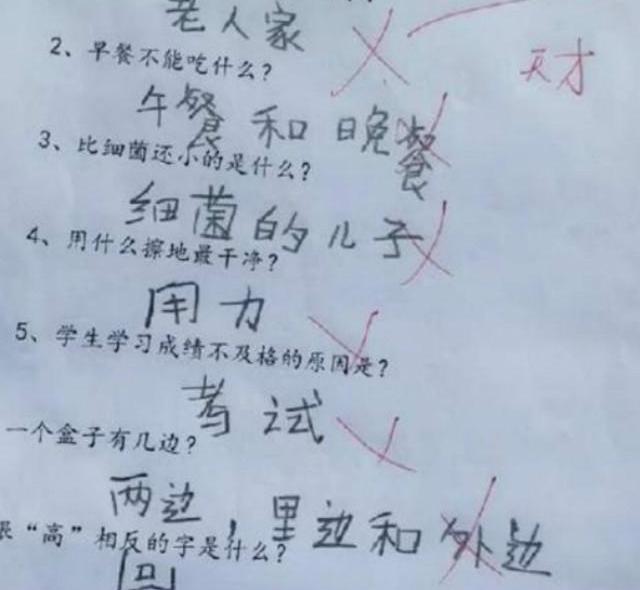 老人家
2、早餐不能吃什么?
天才
午餐和晚餐
3、比细菌还小的是什么?
细菌的儿子
4、用什么擦地最干净?
用力
5、学生学习成绩不及格的原因是?
考试
一个盒子有几边?
两边，里边和外边
跟“高”相反的字是什么?